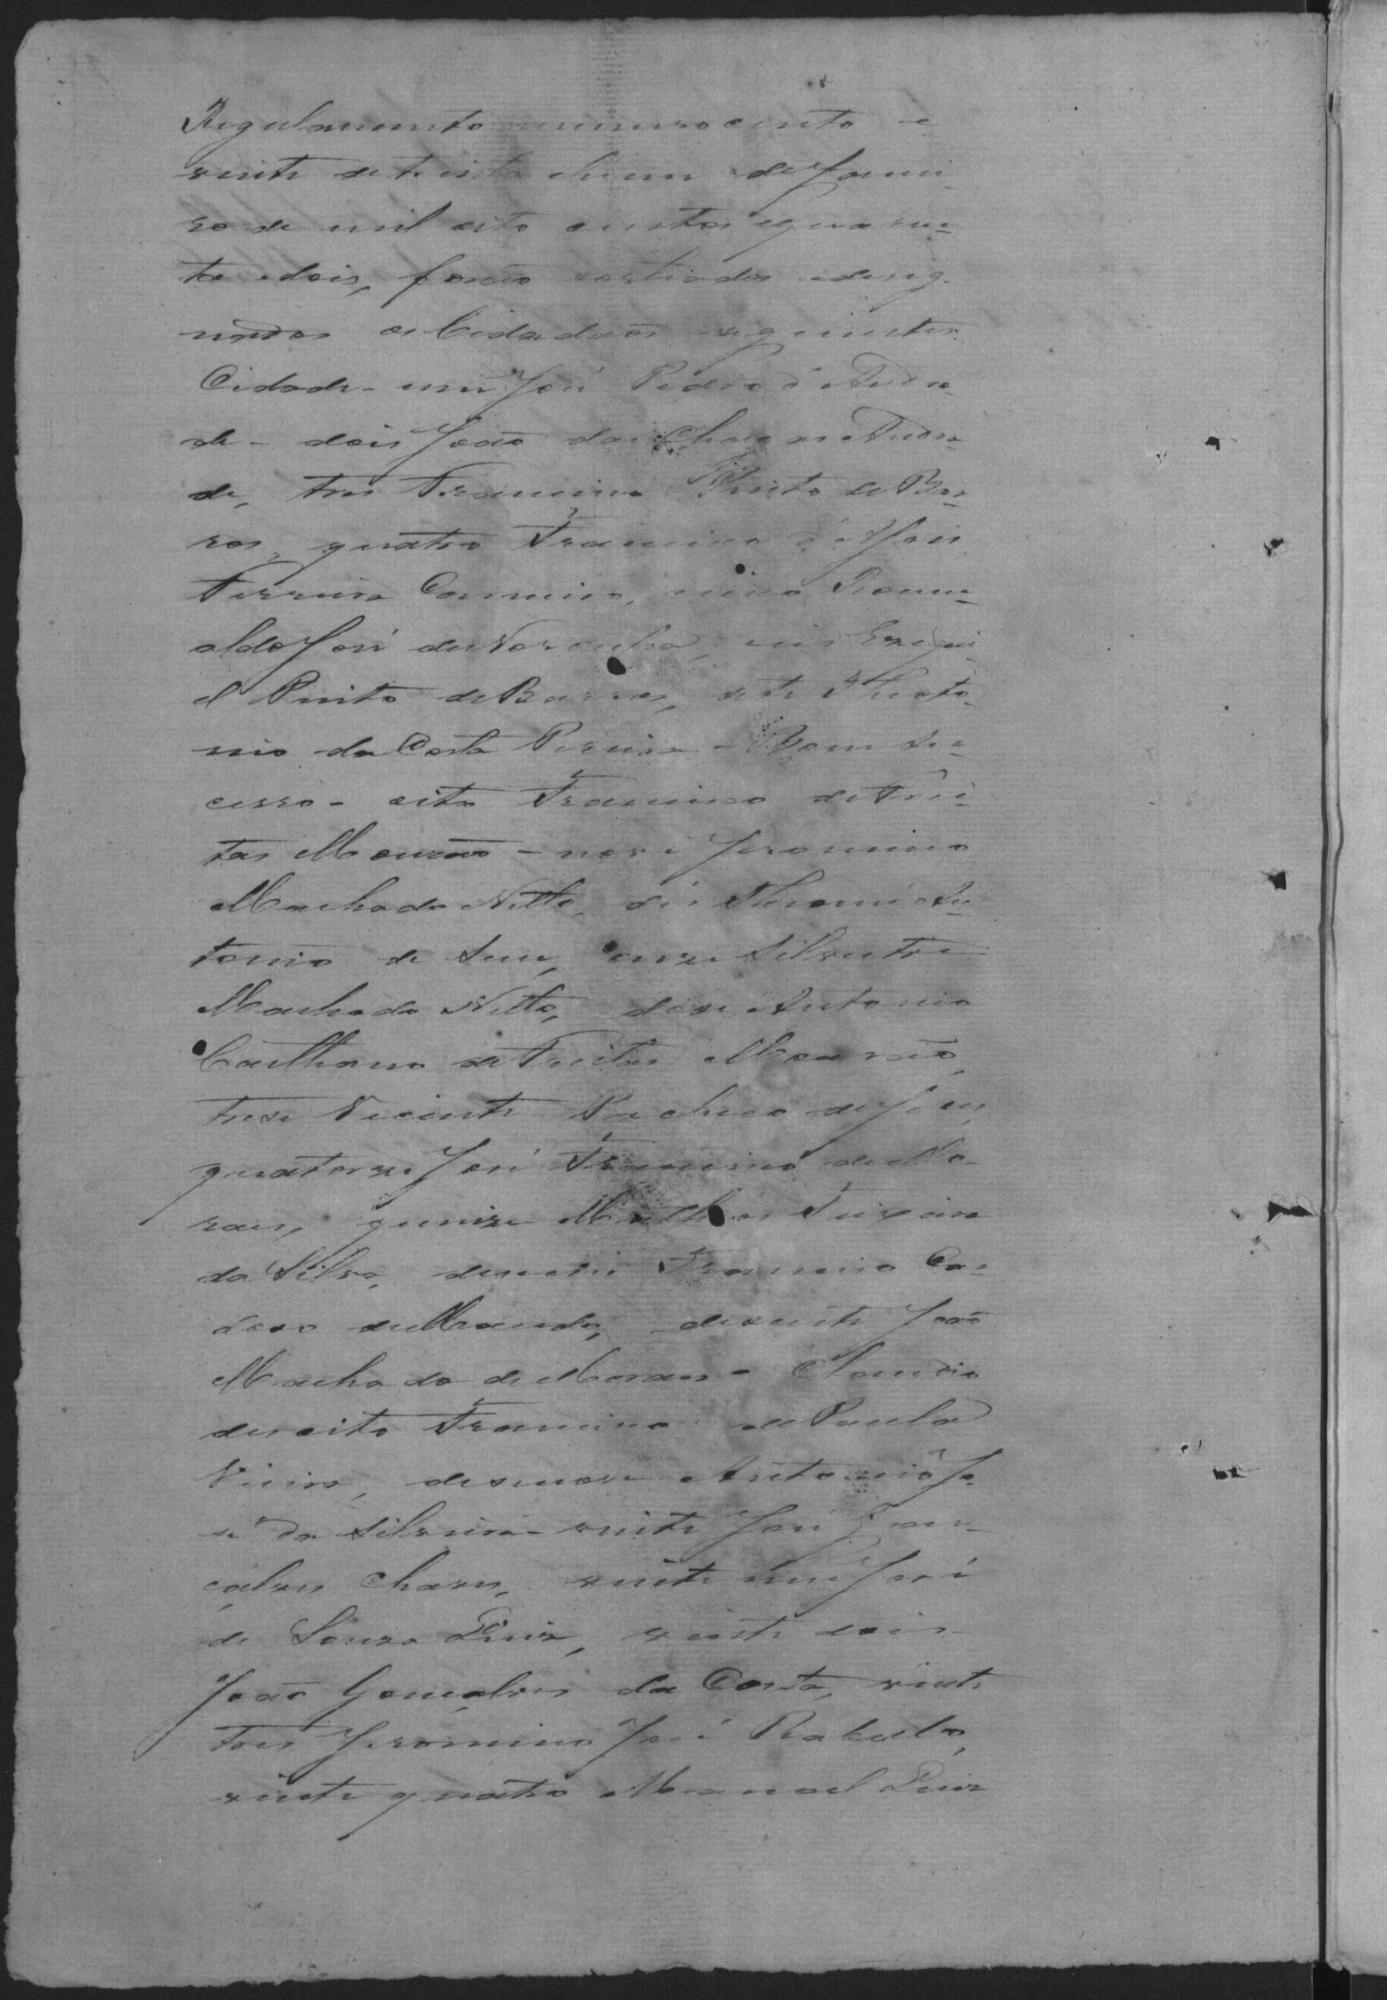 Regulamento numero cento e
vinte de trinta e hum de Janei-
ro de mil oito centos e quaren-
ta e dois, forão sorteados e desig-
nados os Cidadãos seguintes.
Cidade - um José Pedro d'Andra-
de - dois João das Chagas Andra-
de, tres Francisco Pinto de Bar-
ros, quatro Francisco José
Ferreira Carneiro, cinco Romu-
aldo José de Noronha, seis Ezequi-
el Pinto de Barros, sete Theoto-
nio da Costa Pereira - Bom Su-
cesso - oito Francisco de Frei-
tas Mourão - nove Jeronimo
Machado Netto, dés An-
tonio de onze Silvestre
Machado Netto, dose Antonio
Caethano de Freitas Mourão,
trese Vicente Pacheco de
quatorze José Francisco de Mo-
raes, quinze Matheos Teixeira
da Silva, deseseis Francisco Car-
doso de desesete João
Machado de Moraes - Claudio
desoito Francisco de Paula
Vieira, desenove Antonio Jo-
sé da Silveira - vinte José Gon-
çalves Chaves, vinte um José
de Souza Diniz, vinte dois
João Gonçalves da Costa, vinte
tres Jeronimo José Rabello,
vinte quatro Manoel Diniz